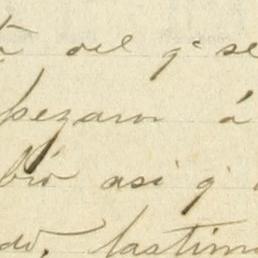 del q.e se
pezaron á
bió así q.
do, lastim